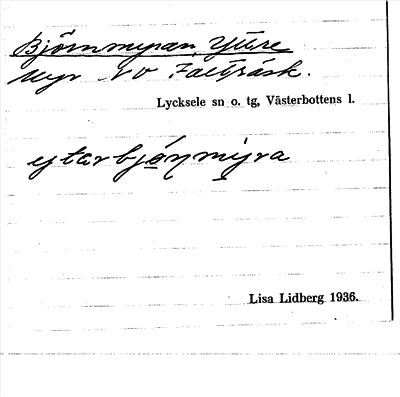 Björnmyran, Yttre
Myr NO Faltträsk.
Lycksele sn o. tg, Västerbottens l.
ytərbjö̱ṇmýra
Lisa Lidberg 1936.